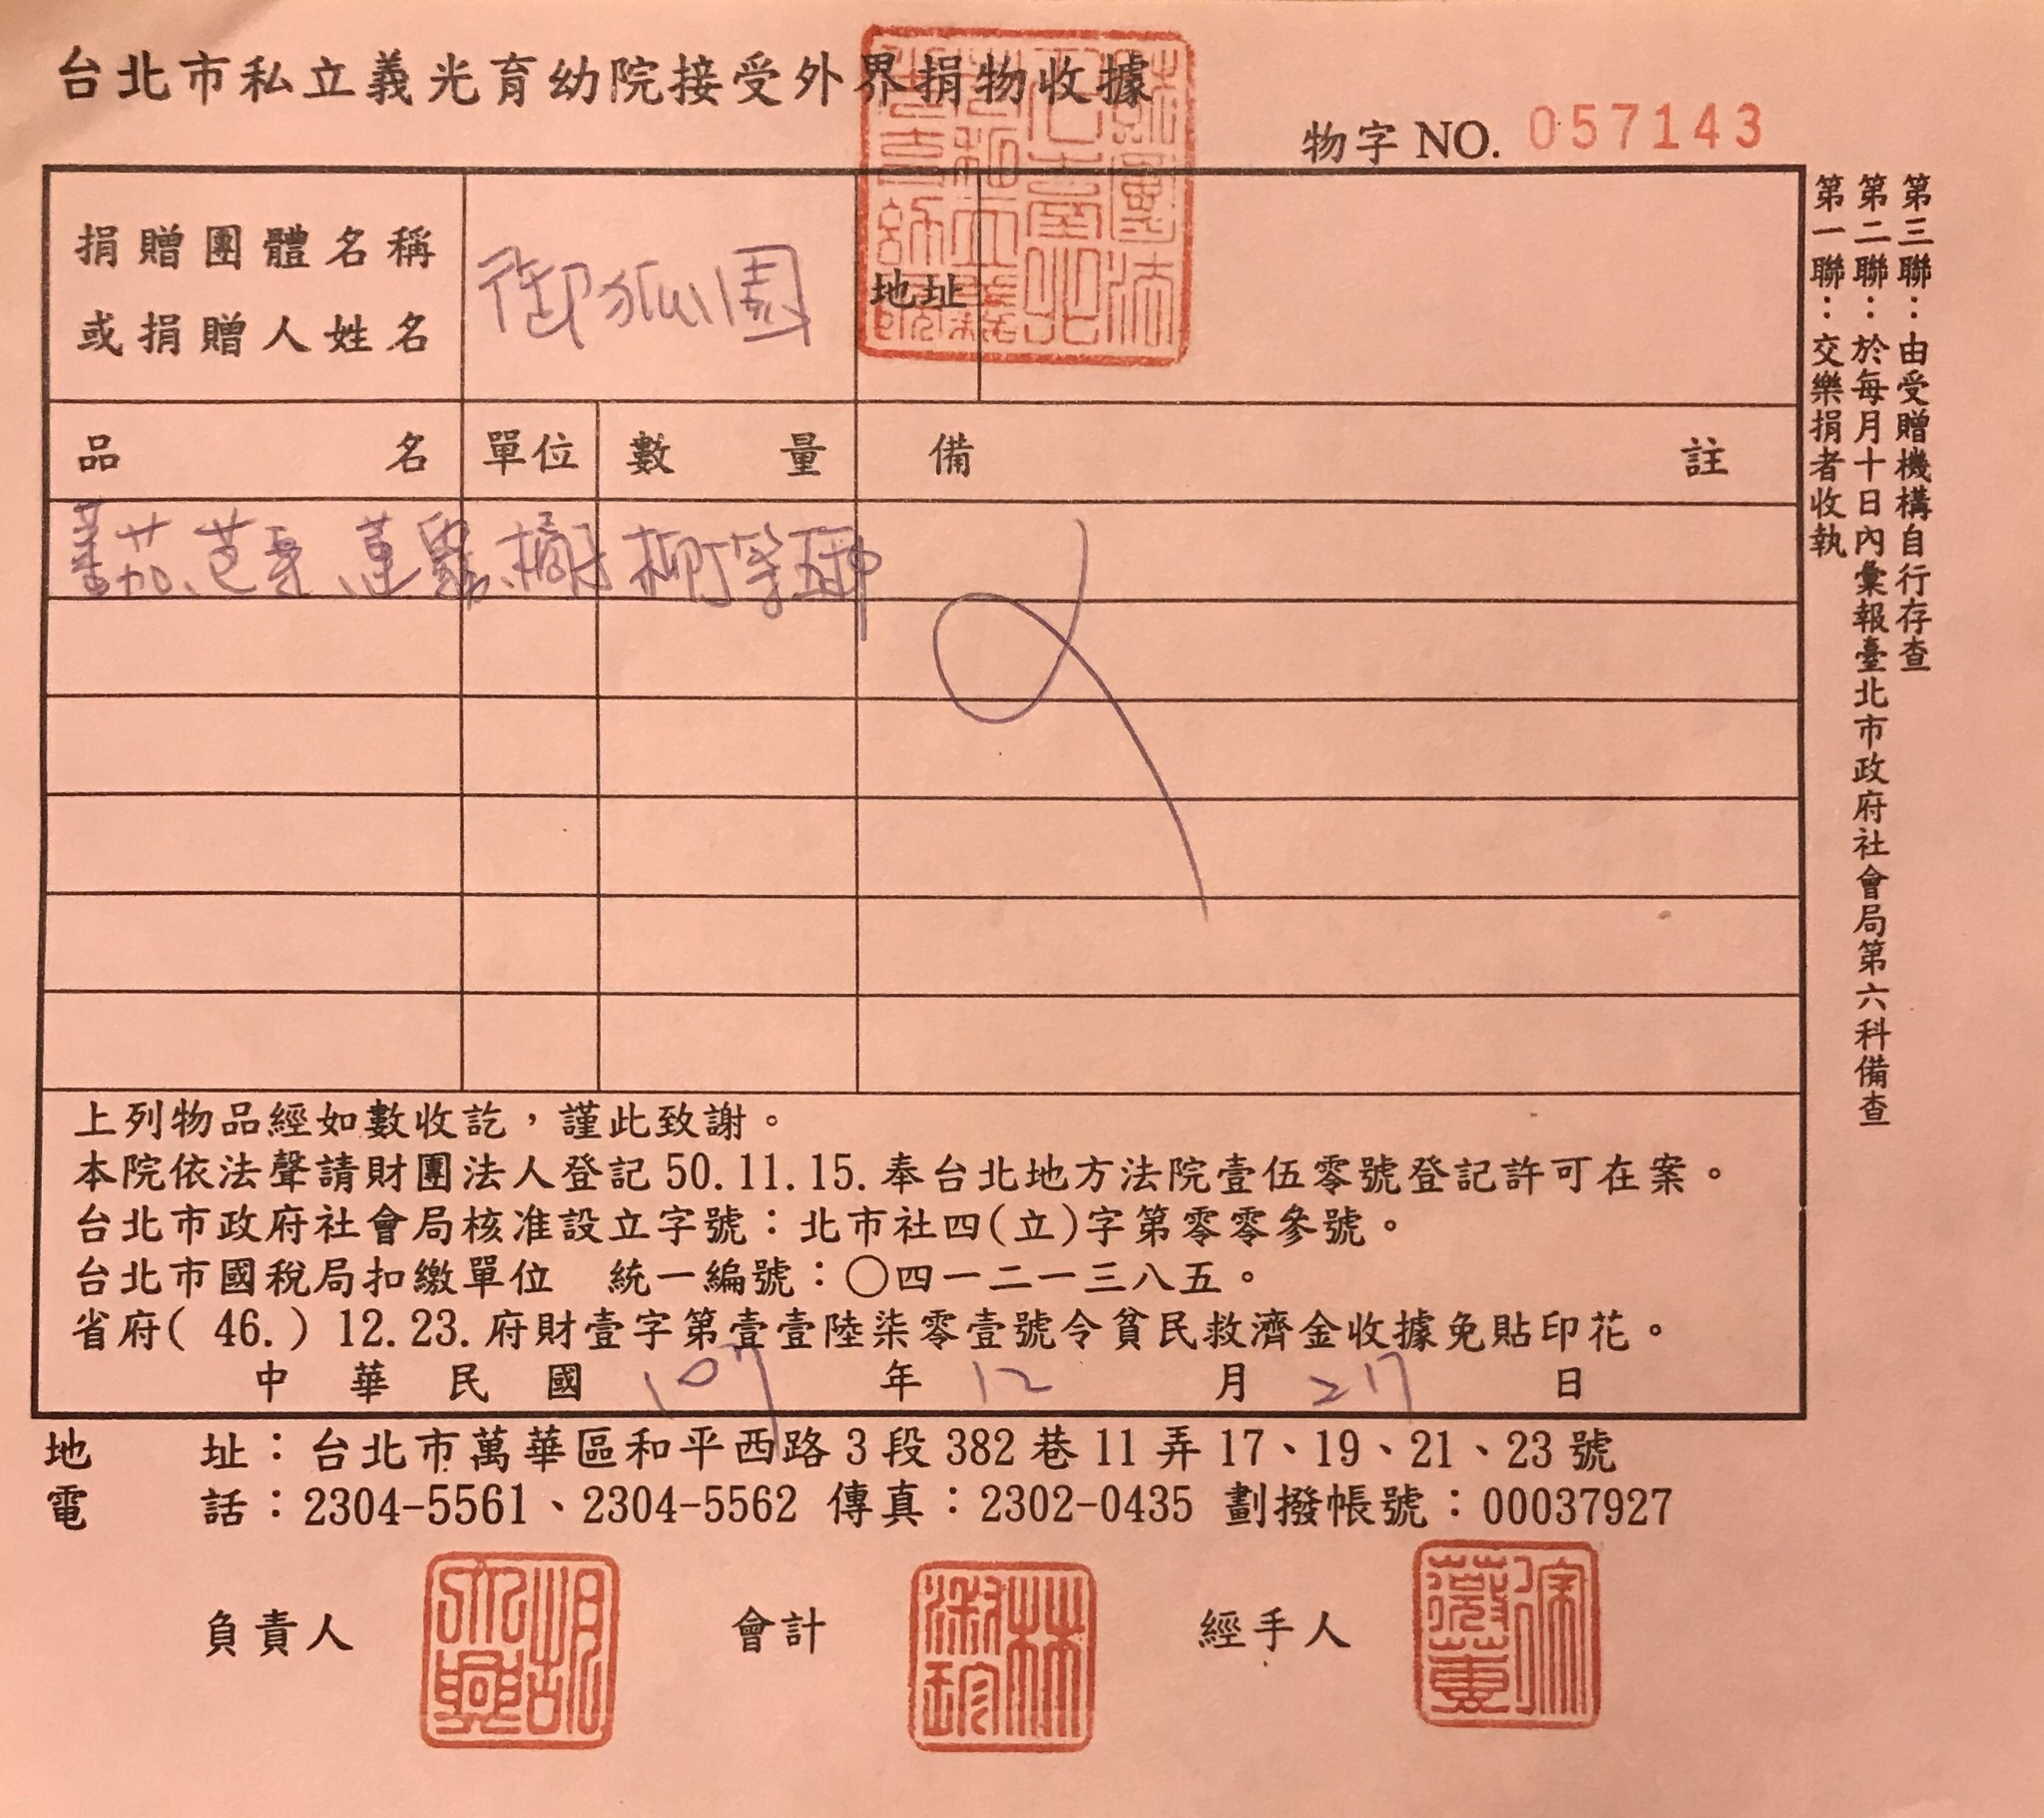 台北市私立義光育幼院接受外界捐物收據
物字 NO. 057143
捐贈團體名稱
或捐贈人姓名
御狐園
地址
品名 單位 數量 備註
蕃茄、芭樂、蓮霧、橘子 柳丁等五種
上列物品經如數收訖，謹此致謝。
本院依法聲請財團法人登記50.11.15.奉台北地方法院壹伍零號登記許可在案。
台北市政府社會局核准設立字號：北市社四(立)字第零零參號。
台北市國稅局扣繳單位 統一編號：○四一二一三八五。
省府( 46.) 12.23.府財壹字第壹壹陸柒零壹號令貧民救濟金收據免貼印花。
中華民國 107 年 12 月 27 日
地址：台北市萬華區和平西路3段382巷11弄17、19、21、23號
電話：2304-5561、2304-5562 傳真：2302-0435 劃撥帳號：00037927
負責人 會計 林淑珍 經手人
第一聯：交樂捐者收執
第二聯：於每月十日內彙報臺北市政府社會局第六科備查
第三聯：由受贈機構自行存查